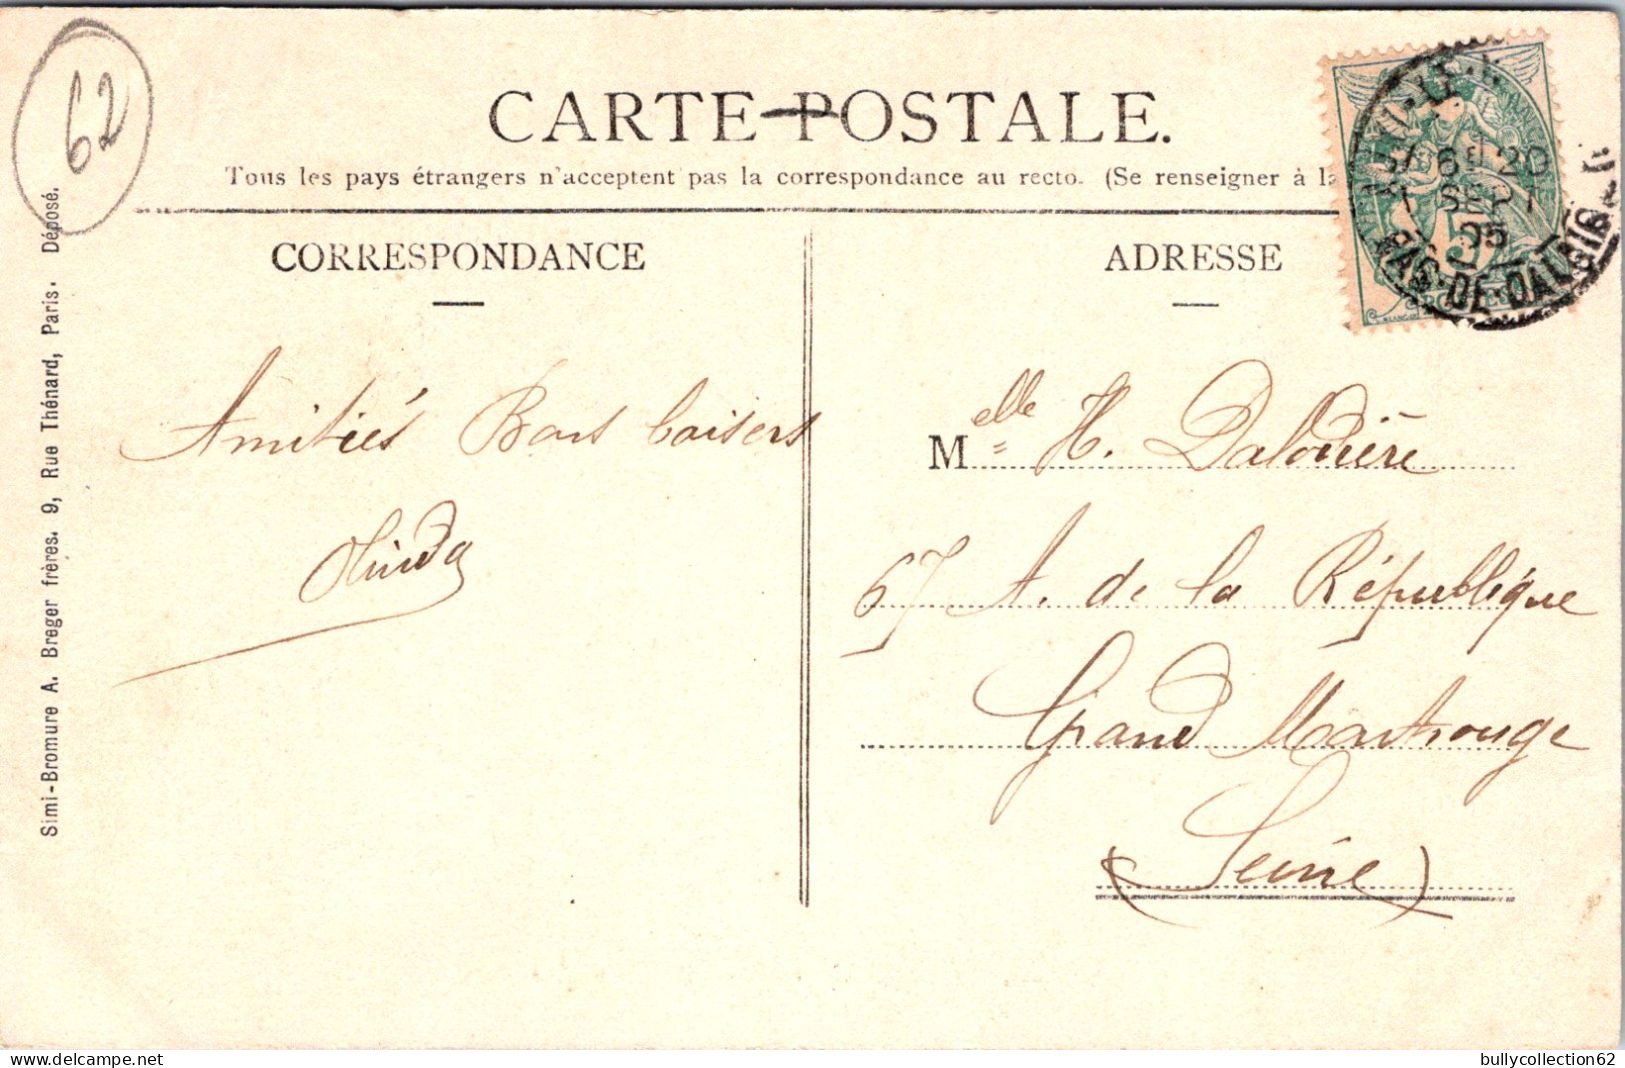 62
CARTE POSTALE.
Tous les pays étrangers n'acceptent pas la correspondance au recto. (Se renseigner à la
CORRESPONDANCE
ADRESSE
6E 20
1 SEPT
05
PAS-DE-CALAIS
5
Simi-Bromure A. Breger frères. 9, Rue Thénard, Paris. Déposé.
Amitiés Bons baisers
Melle H. Dalodière
67 A. de la République
Grand Montrouge
(Seine)
delcampe.net
bullycollection62